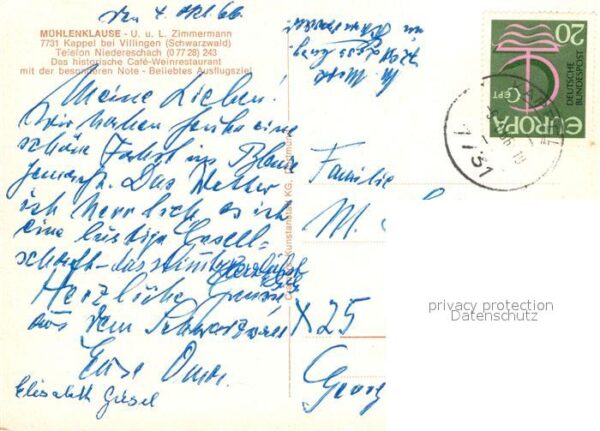 den 4. Okt. 66
MÜHLENKLAUSE - U. u. L. Zimmermann
7731 Kappel bei Villingen (Schwarzwald)
Telefon Niedereschach (07728) 243
Das historische Café-Weinrestaurant
mit der besonderen Note - Beliebtes Ausflugsziel
Meine Lieben!
Wir haben heute eine
schöne Fahrt ins Blaue
gemacht. Das Wetter
ist herrlich, es ist
eine lustige Gesell-
schaft - das stimmt
Herzliche Grüsse
aus dem Schwarzwald
Eure Oma.
Elisabeth Giesel
Familie
M.
X 25
Georg
20
DEUTSCHE BUNDESPOST
CEPT
EUROPA
7731
privacy protection
Datenschutz